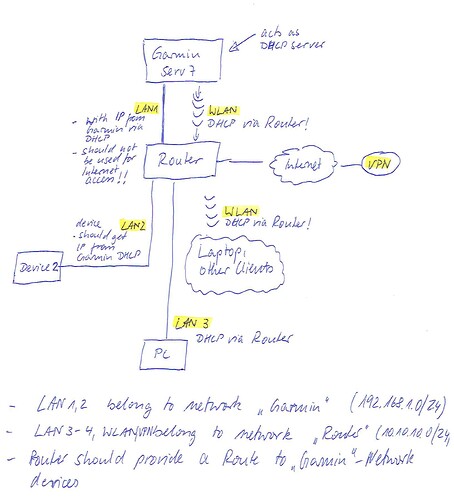 acts as
DHCP server
Garmin
Serv 7
LAN1
- with IP from
Garmin via
DHCP
- should not
be used for
Internet
access!!
WLAN
DHCP via Router!
Router
Internet
VPN
device
LAN2
- should get
IP from
Garmin DHCP
Device 2
WLAN
DHCP via Router!
Laptop,
other Clients
LAN 3
DHCP via Router
PC
- LAN 1,2 belong to network "Garmin" (192.168.1.0/24)
- LAN 3-4, WLAN, VPN belong to network "Router" (10.10.10.0/24)
- Router should provide a Route to "Garmin"-Network
devices